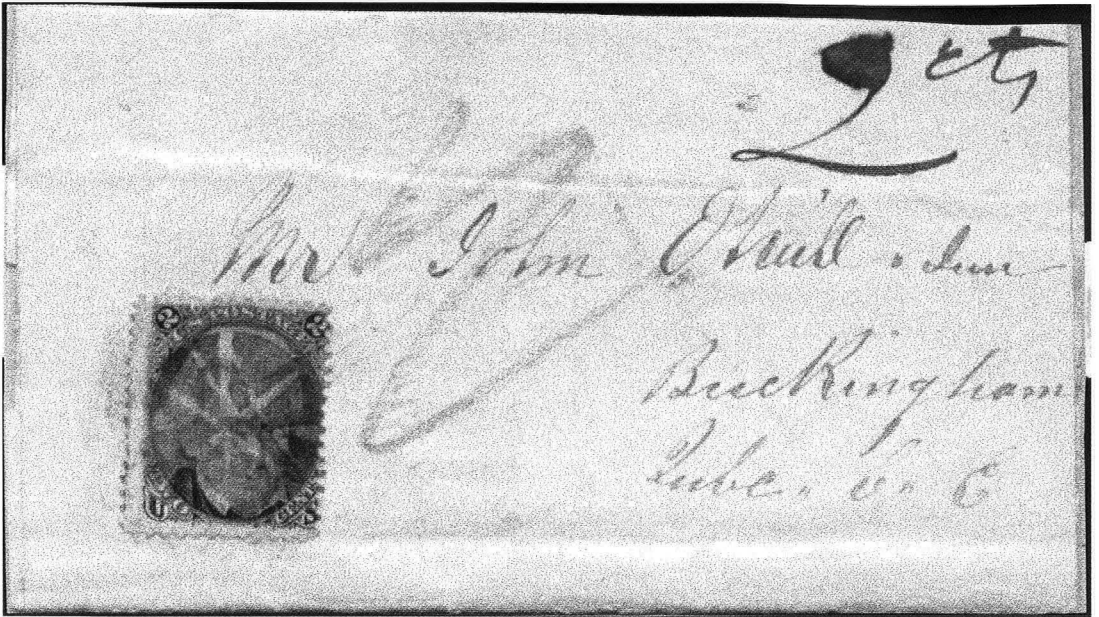 2 cts
Mr John O'Neill . Jun
Buckingham
Qubc. C. E
2 U.S. POSTAGE 2
U